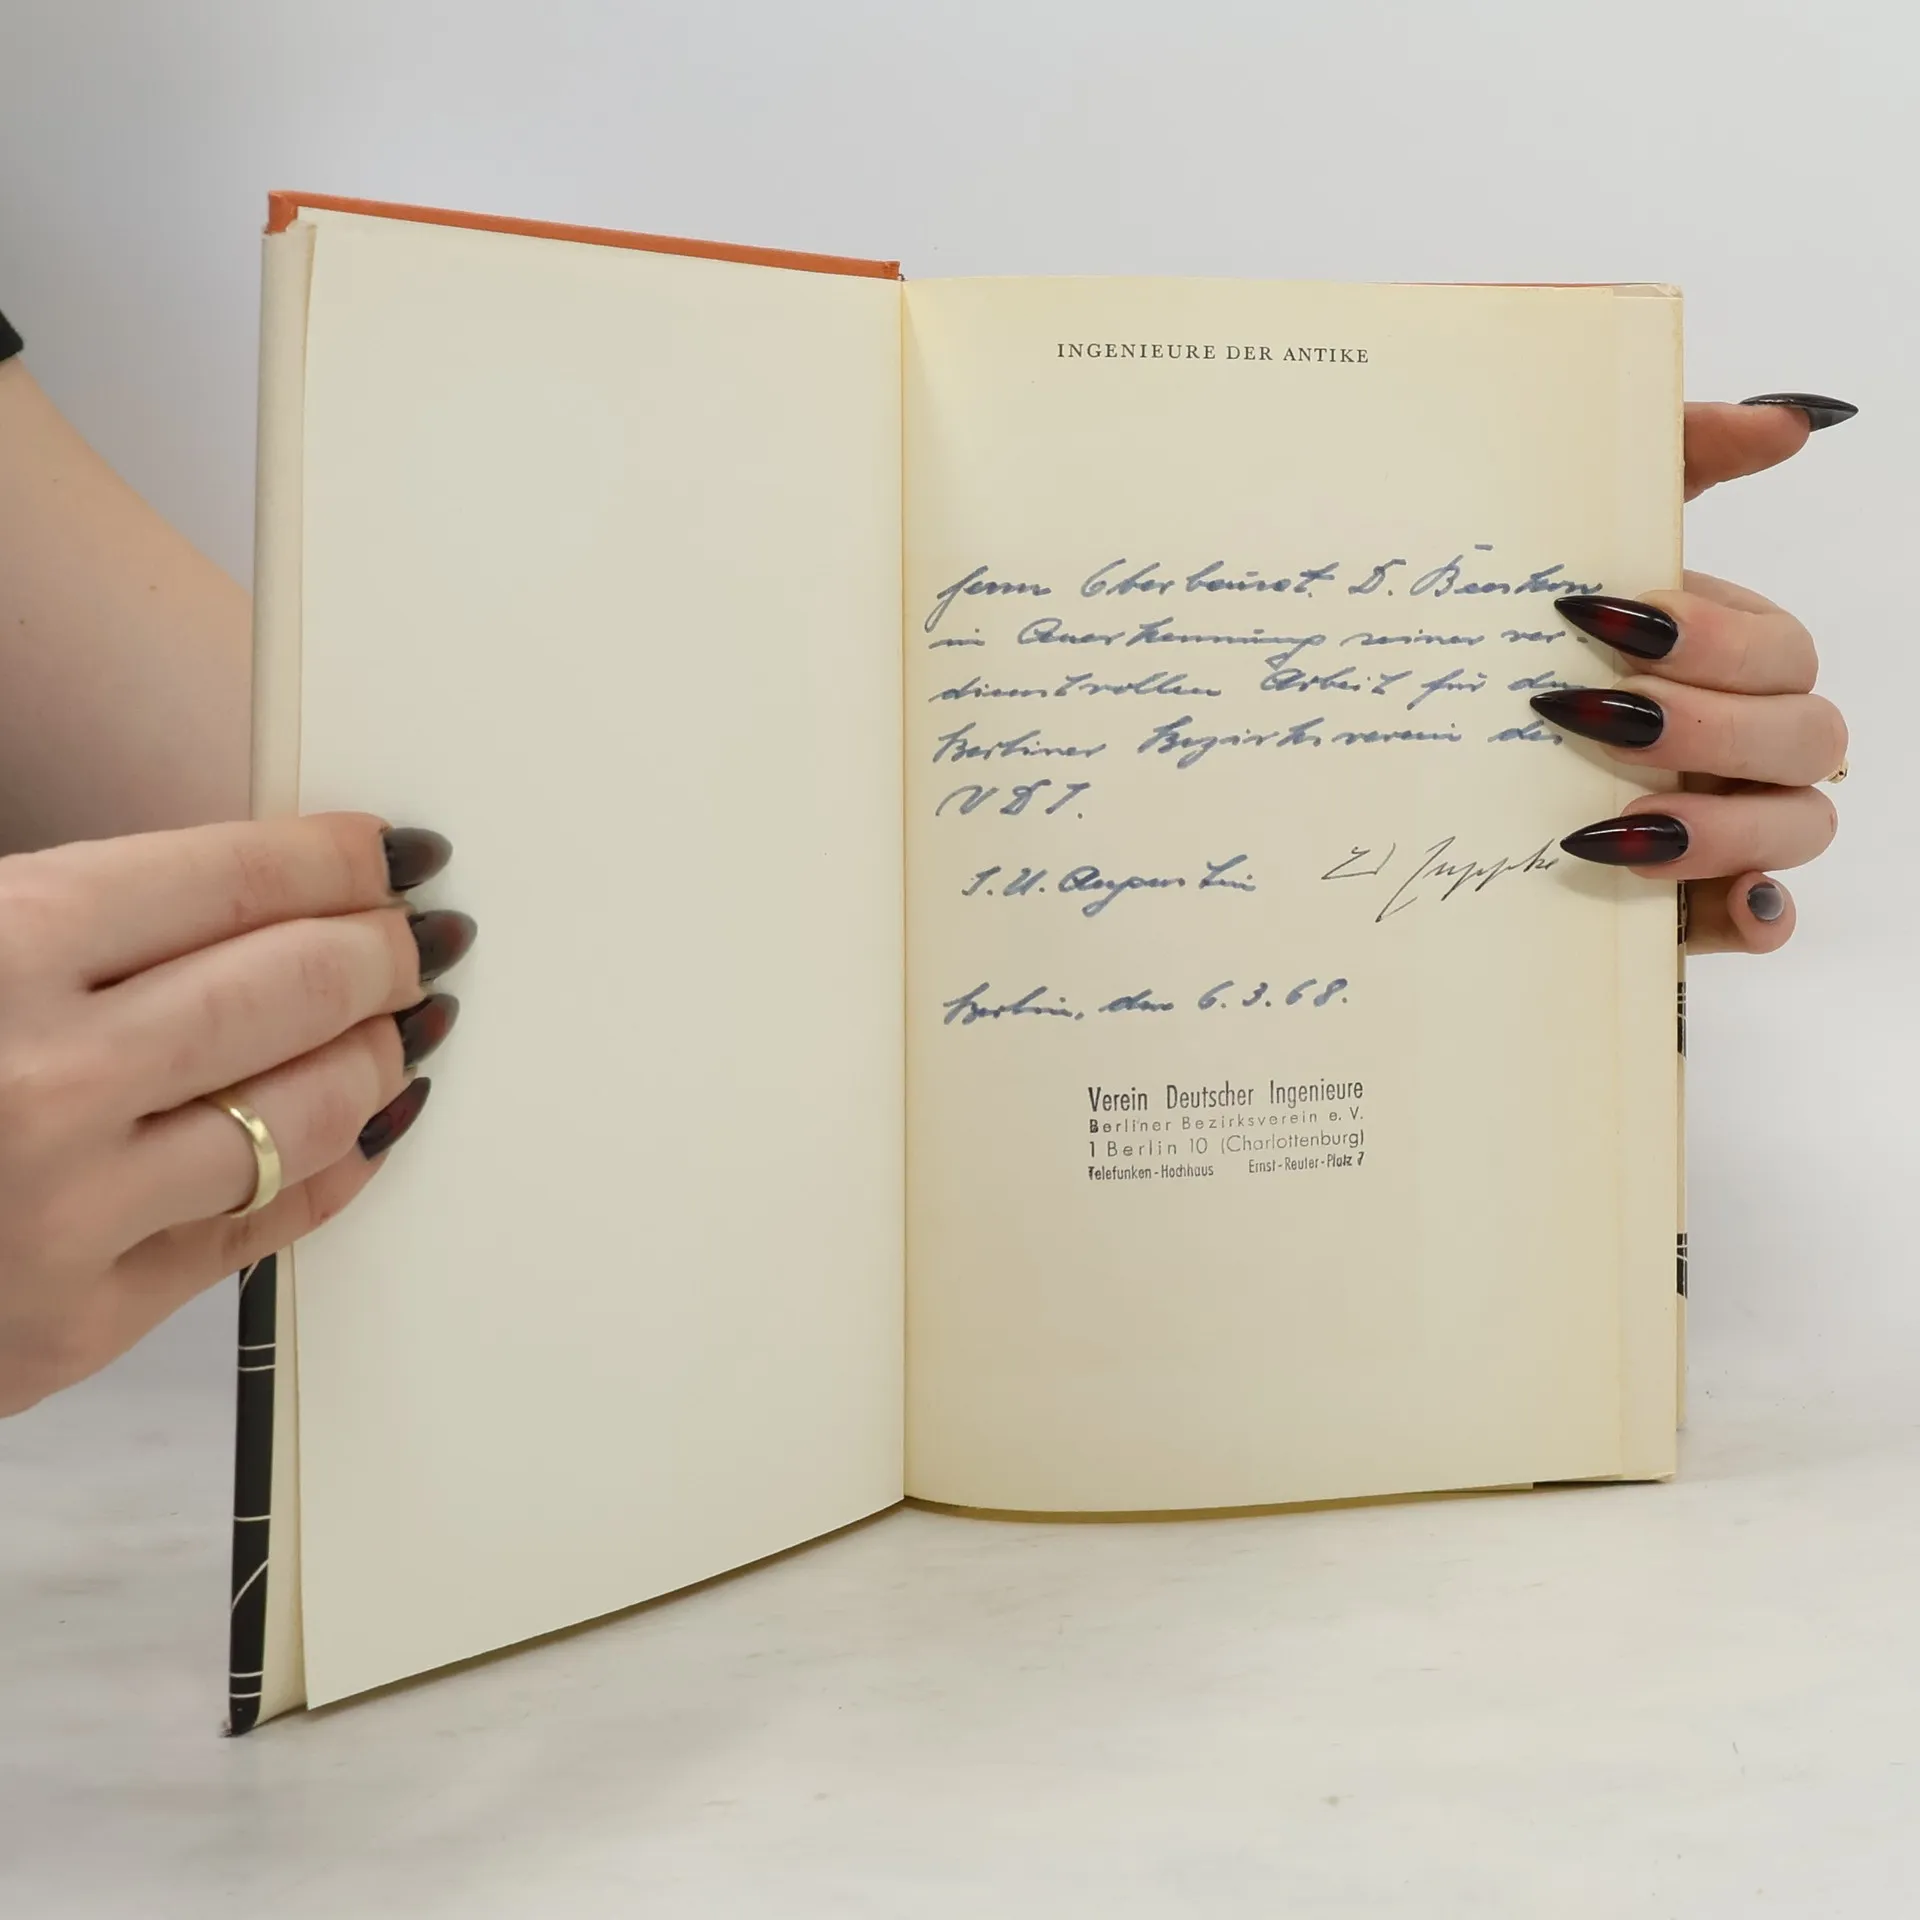 INGENIEURE DER ANTIKE
Herrn Oberbaurat. D.
in Anerkennung seiner ver-
dienstvollen Arbeit für den
Berliner Bezirksverein des
VDI.
I.A. Augustin
Berlin, den 6.3.68.
Verein Deutscher Ingenieure
Berliner Bezirksverein e. V.
1 Berlin 10 (Charlottenburg)
Telefunken-Hochhaus Ernst-Reuter-Platz 7